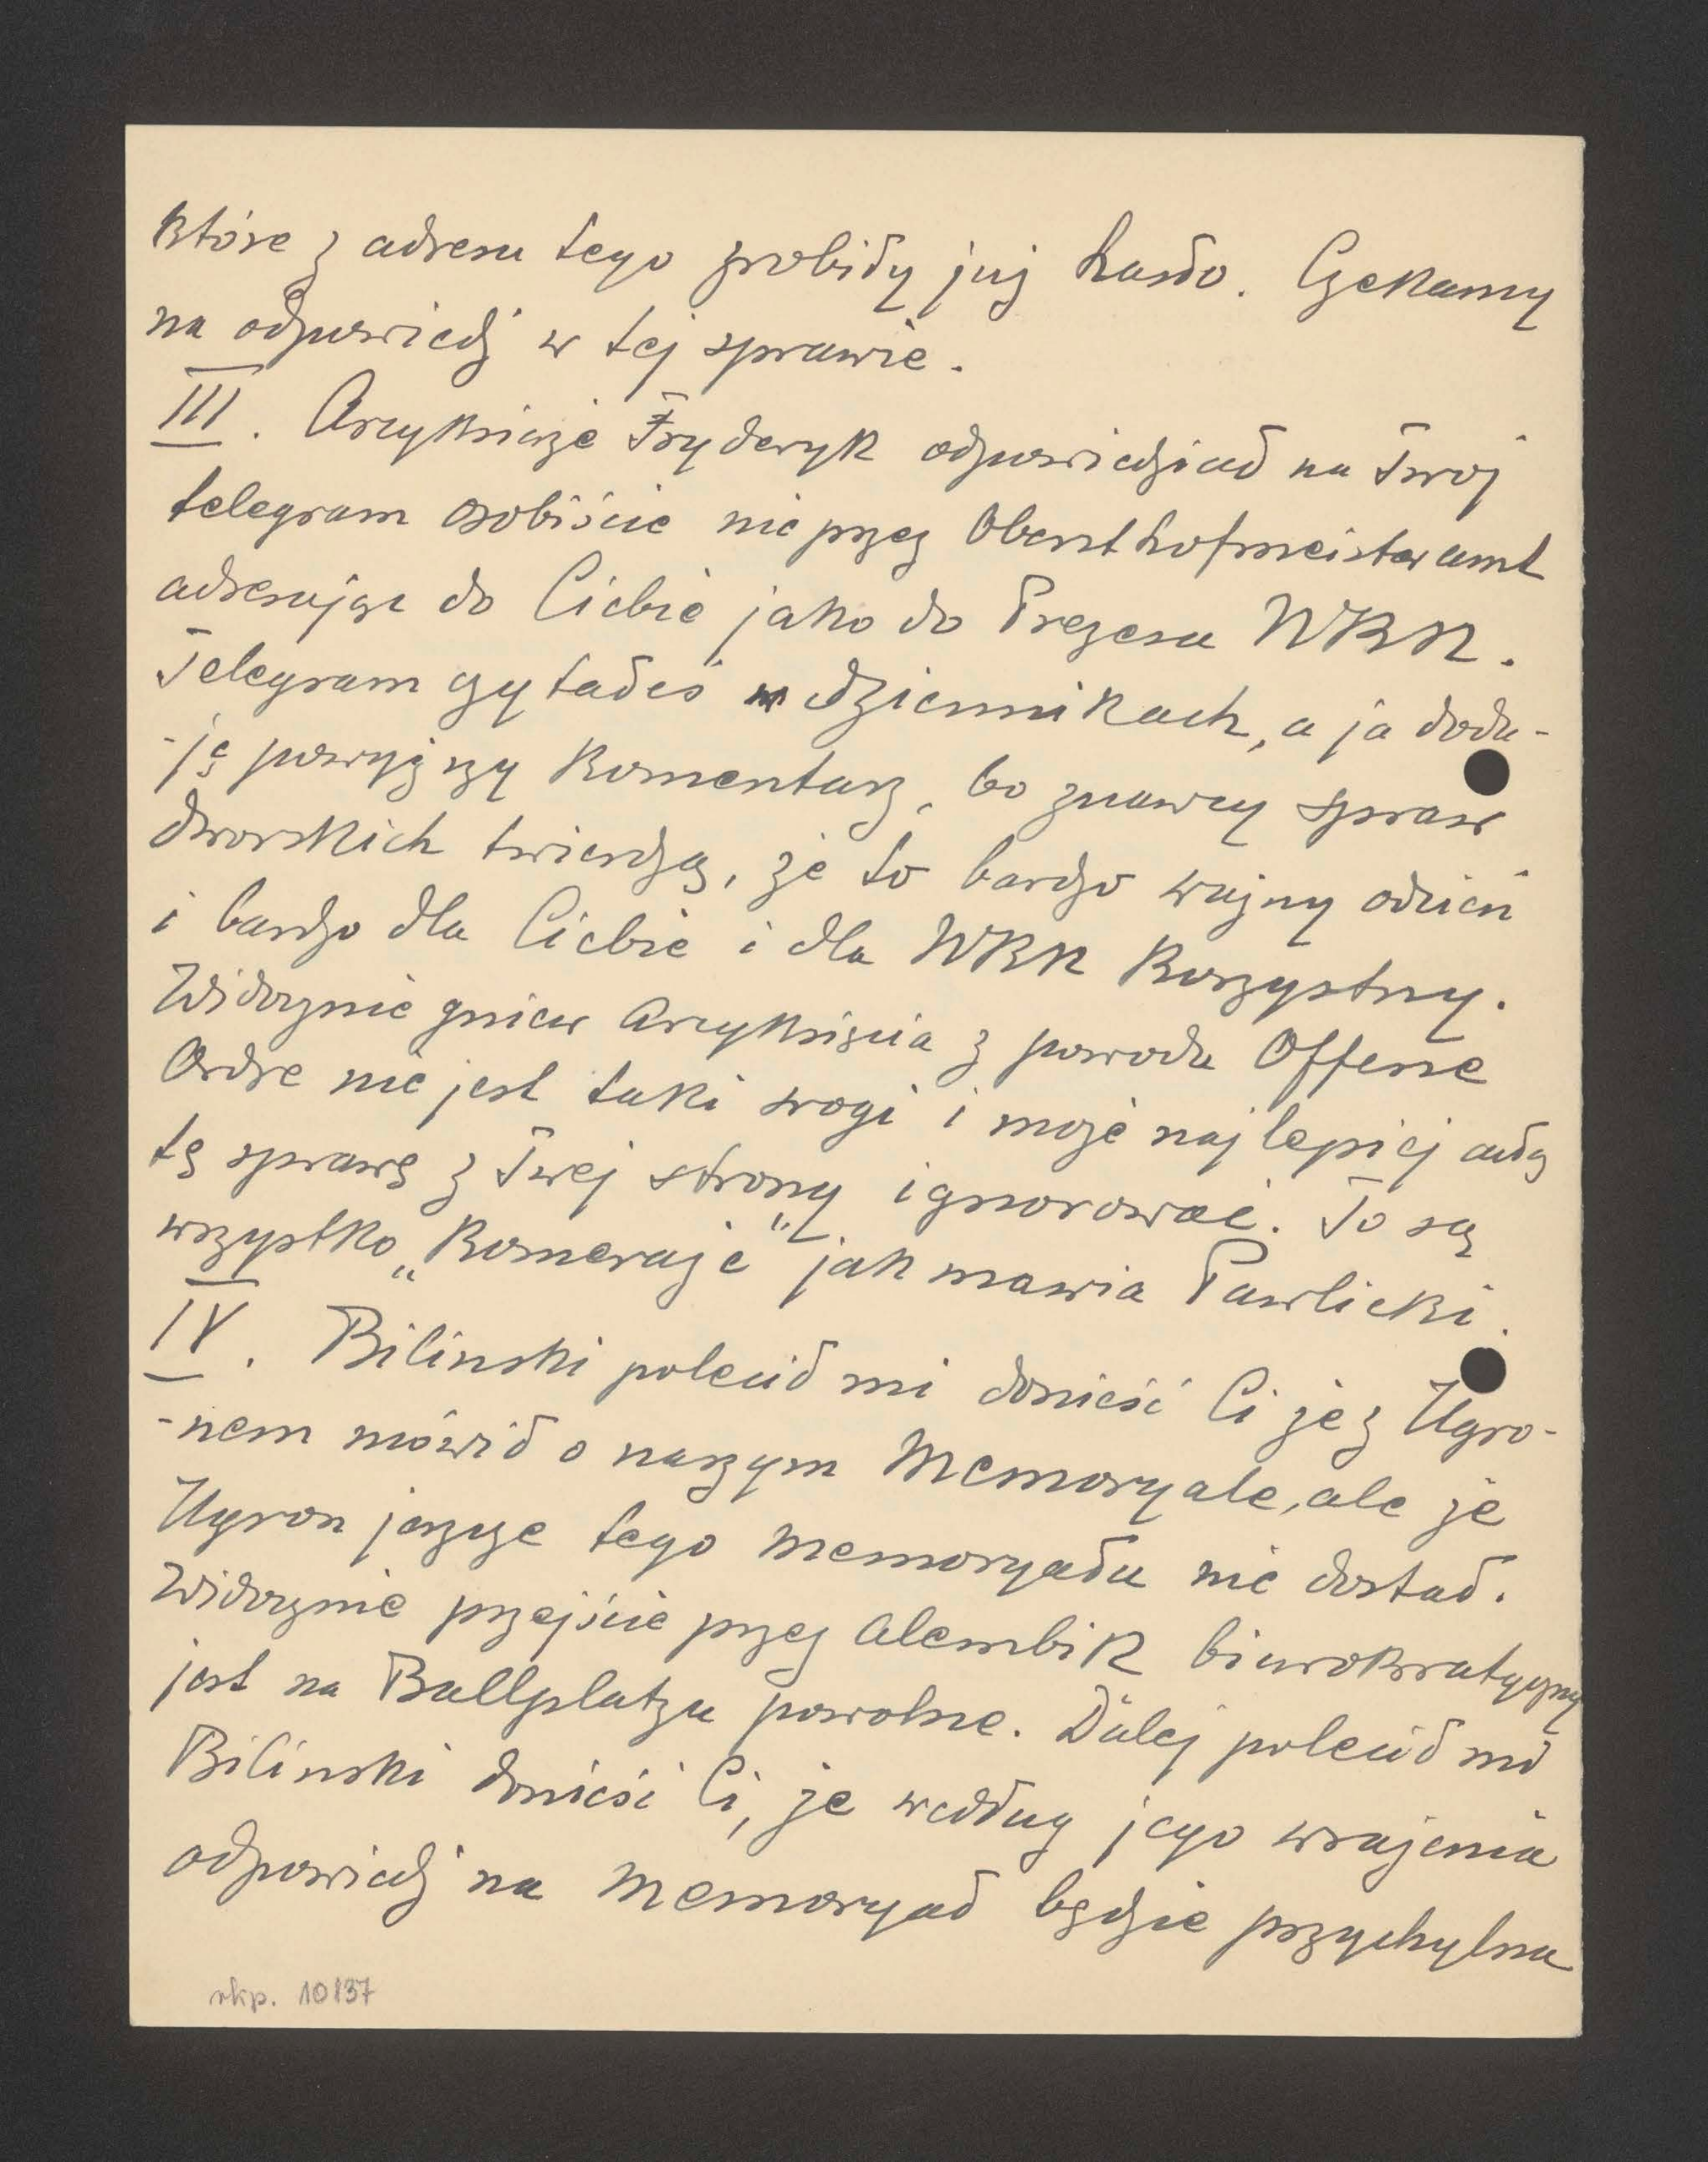 które z adresu tego zrobiły już hasło. Czekamy
na odpowiedź w tej sprawie.
III. Arcyksiąże Fryderyk odpowiedział na Twój
telegram osobiście nie przez Obersthofmeisteramt
adresując do Ciebie jako do Prezesa NKN.
Telegram czytałeś w dziennikach, a ja doda-
-ję powyższy komentarz, bo znawcy spraw
dworskich twierdzą, że to bardzo ważny odcień
i bardzo dla Ciebie i dla NKN korzystny.
Widocznie gniew arcyksięcia z powodu Offene
Ordre nie jest taki srogi i może najlepiej całą
tę sprawę z Twej strony ignorować. To są
wszystko „Komeraże" jak mawia Pawlicki.
IV. Bilinski polecił mi donieść Ci że z Ugro-
-nem mówił o naszym Memoryale, ale że
Ugron jeszcze tego memoryału nie dostał.
Widocznie przejście przez alembik biurokratyczny
jest na Ballplatzu powolne. Dalej polecił mi
Bilinski donieść Ci, że według jego wrażenia
odpowiedź na memoryał będzie przychylna
rkp. 10137